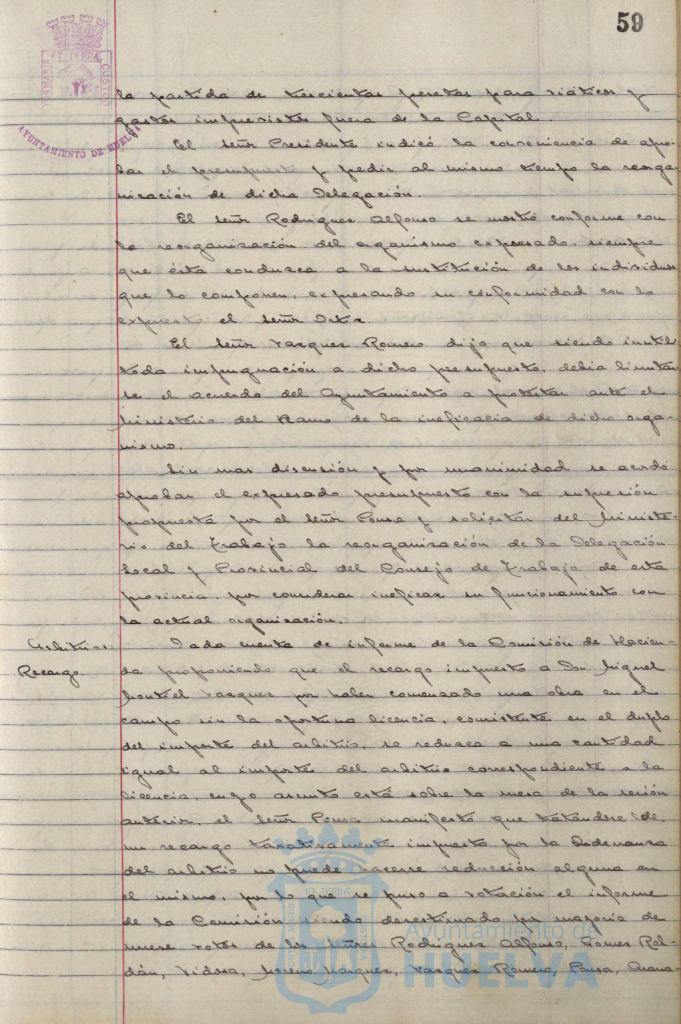 59
AYUNTAMIENTO DE HUELVA
la partida de trescientas pesetas para viáticos y
gastos imprevistos fuera de la Capital.
El señor Presidente indicó la conveniencia de apro-
bar el presupuesto y pedir al mismo tiempo la reorga-
nización de dicha Delegación.
El señor Rodriguez Alfonso se mostró conforme con
la reorganización del organismo expresado, siempre
que ésta conduzca a la sustitución de los individuos
que lo componen, expresando su conformidad con lo
expuesto el señor
El señor Vazquez Romero dijo que siendo inutil
toda impugnación a dicho presupuesto, debia limitar-
se el acuerdo del Ayuntamiento a protestar ante el
Ministerio del Ramo de la ineficacia de dicho orga-
nismo.
Sin mas discusión y por unanimidad se acordó
aprobar el expresado presupuesto con la supresión
propuesta por el señor Ponsa y solicitar del Ministe-
rio del Trabajo la reorganización de la Delegación
Local y Provincial del Consejo de Trabajo de esta
provincia, por considerar ineficaz su funcionamiento con
la actual organización.
Arbitrios
Recargo.
Dada cuenta de informe de la Comisión de Hacien-
da proponiendo que el recargo impuesto a Don Miguel
Montiel Vazquez por haber comenzado una obra en el
campo sin la oportuna licencia, consistente en el duplo
del importe del arbitrio, se reduzca a una cantidad
igual al importe del arbitrio correspondiente a la
licencia, cuyo asunto está sobre la mesa de la sesión
anterior, el señor Ponsa manifestó que tratándose de
un recargo taxativamente impuesto por la Ordenanza
del arbitrio no puede hacerse reducción alguna en
el mismo, por lo que se puso a votación el informe
de la Comisión siendo desestimado por mayoria de
nueve votos de los señores Rodriguez Alfonso, Gomez Rol-
dán, Vidosa, Moreno Marquez, Vazquez Romero, Ponsa,
Ayuntamiento de
HUELVA